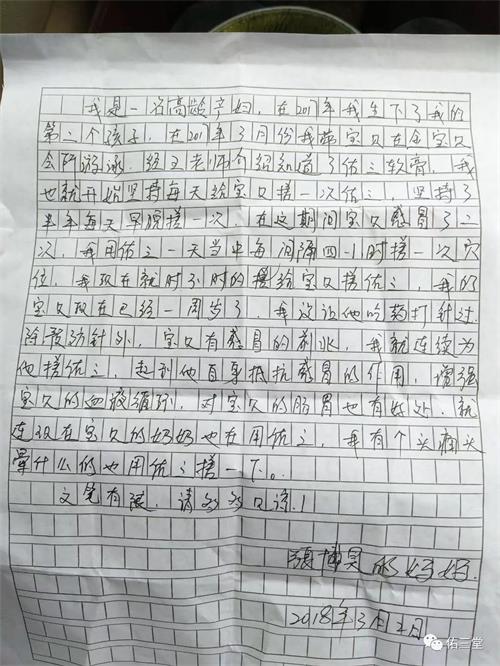 我是一名高龄产妇,在2017年我生下了我的
第二个孩子,在2017年3月份我带宝贝在金宝贝
会所游泳,经王老师介绍知道了佑三软膏,我
也就开始坚持每天给宝贝搓一次佑三,坚持了
半年每天早晚搓一次,在这期间宝贝感冒了二
次,我用佑三一天当中每间隔四一小时搓一次穴
位,我现在就时不时的给宝贝搓佑三,我的
宝贝现在已经一周岁了,我没让他吃药打针过
除预防针外,宝贝有感冒的前兆,我就连续为
他搓佑三,起到他自身抵抗感冒的作用,增强
宝贝的血液循环,对宝贝的肠胃也有好处,就
连现在宝贝的奶奶也在用佑三,我有个头痛头
晕什么的也用佑三搓一下。
文笔有限,请多多见谅!
张博昊的妈妈.
2018年3月2日
佑三堂